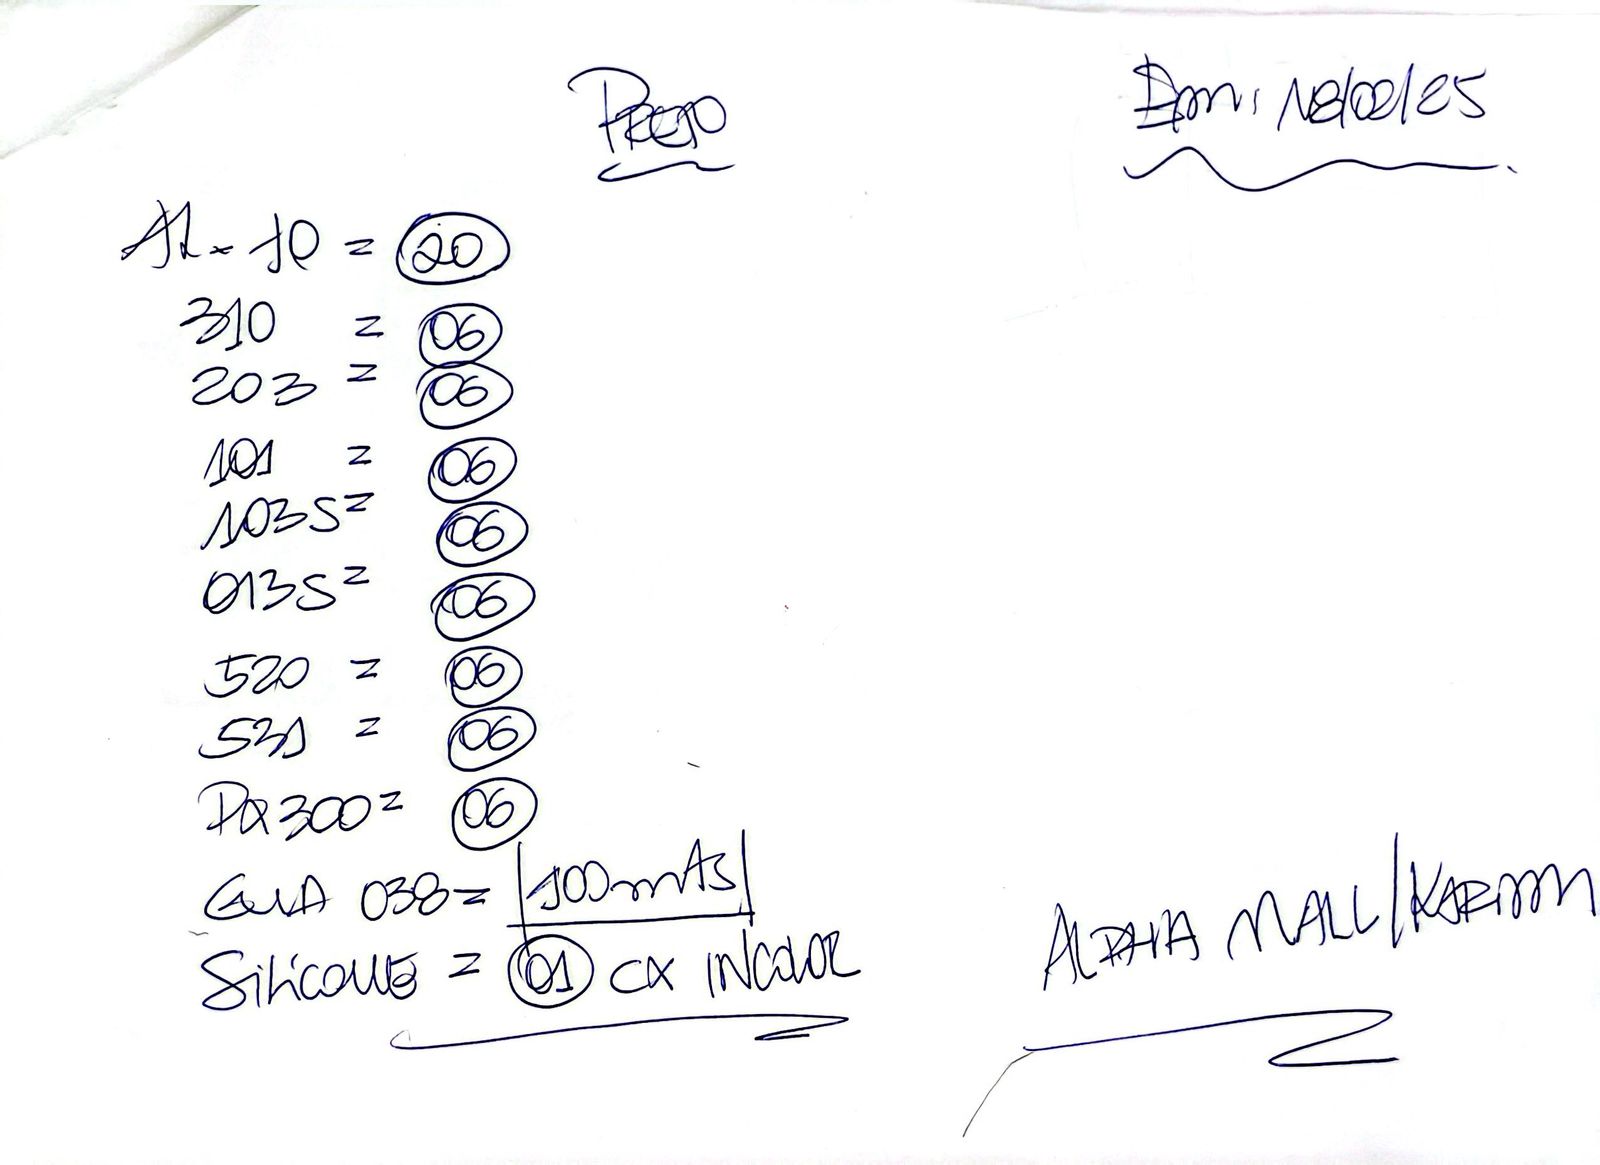 PRETO
Em: 18/02/25
AL-10 = 20
310 = 06
203 = 06
101 = 06
103S = 06
013S = 06
520 = 06
531 = 06
PQ300 = 06
GUIA 038 = 100 mts
Silicone = 01 CX INCOLOR
ALPHA MALL/KARIMI